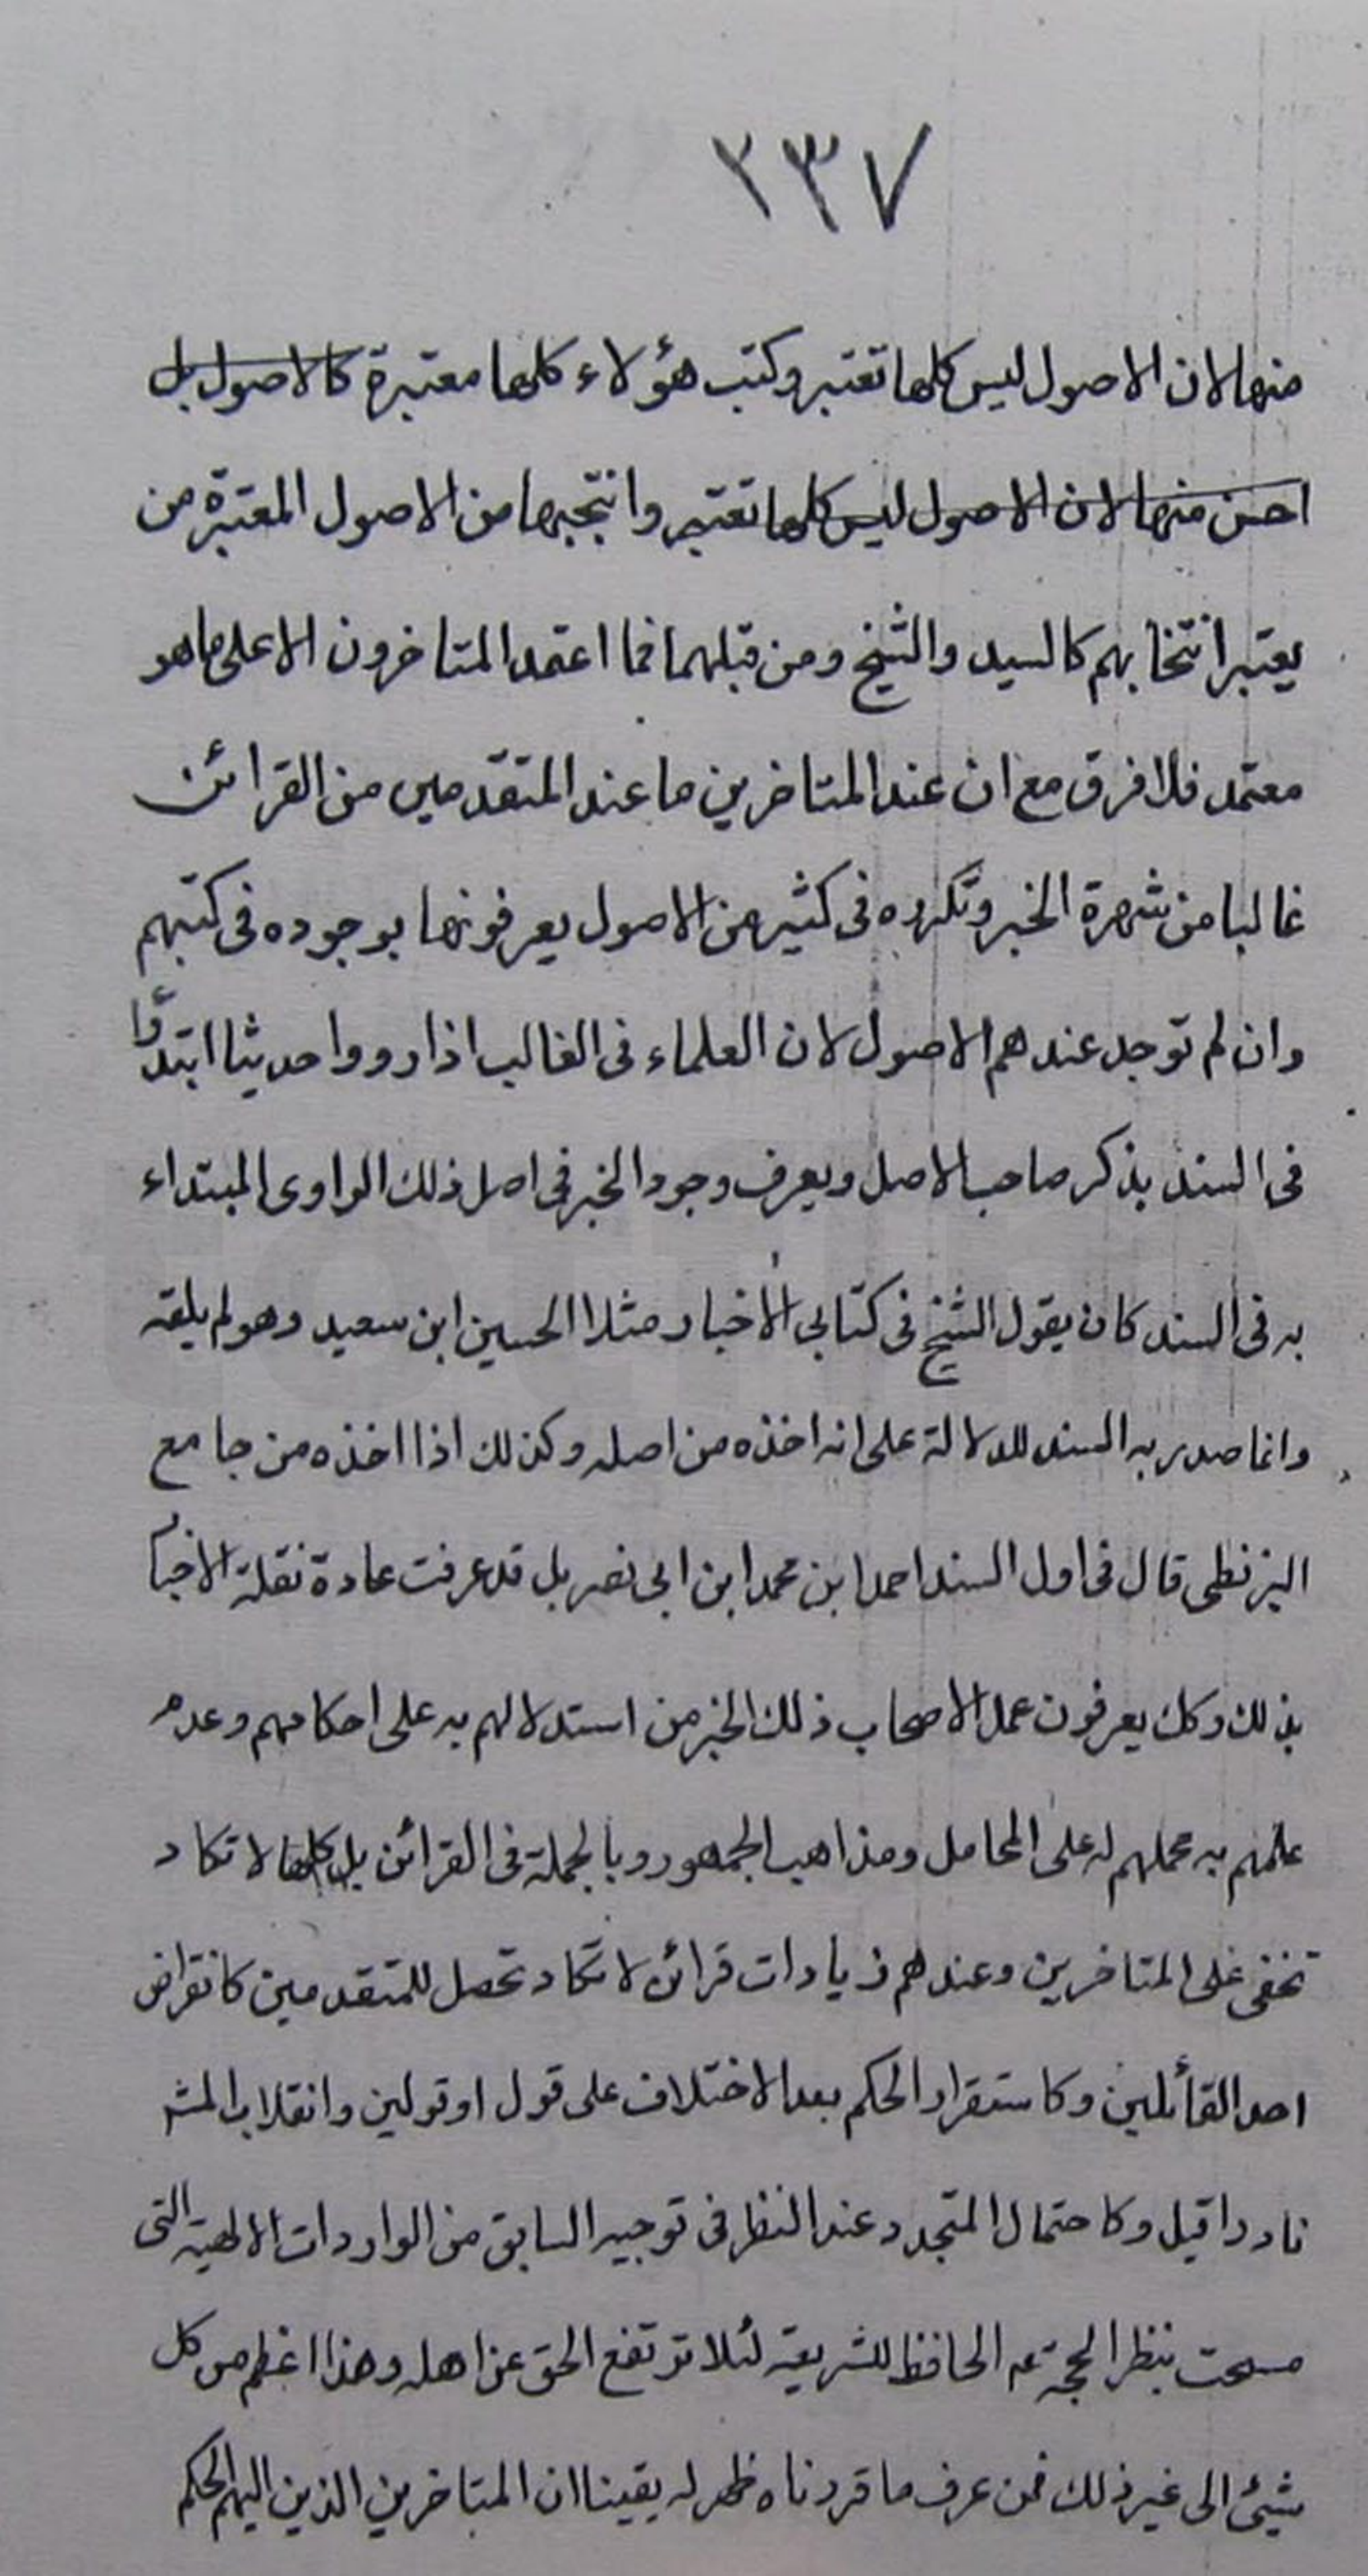 ٢٣٧
منها لان الاصول ليس كلها تعتبر وكتب هؤلاء كلها معتبرة كالاصول بل
احسن منها لان الاصول ليس كلها تعتبر وانتجبها من الاصول المعتبرة من
يعتبر انتخابهم كالسيد والشيخ ومن قبلهما فما اعتمد المتاخرون الا على ما هو
معتمد فلا فرق مع ان عند المتاخرين ما عند المتقدمين من القرائن
غالبا من شهرة الخبر وتكرره فى كثير من الاصول يعرفونها بوجوده فى كتبهم
وان لم توجد عندهم الاصول لان العلماء فى الغالب اذا رووا حديثا ابتدؤا
فى السند بذكر صاحب الاصل ويعرف وجود الخبر فى اصل ذلك الراوى المبتداء
به فى السند كان يقول الشيخ فى كتابى الأخبار مثلا الحسين ابن سعيد وهو لم يلقه
وانما صدر به السند للدلالة على انه اخذه من اصله وكذلك اذا اخذه من جامع
البزنطى قال فى اول السند احمد ابن محمد ابن ابى نصر بل قد عرفت عادة نقلة الاخبا
بذلك وكك يعرفون عمل الاصحاب ذلك الخبر من استدلالهم به على احكامهم وعدم
علمهم به عملهم له على المحامل ومذاهب الجمهور وبالجملة فى القرائن بل كلها لا تكاد
تخفى على المتاخرين وعندهم زيادات قرائن لا تكاد تحصل للمتقدمين كانقراض
احد القائلين وكاستقرار الحكم بعد الاختلاف على قول او قولين وانقلاب
نادرا قيل وكاحتمال المتجدد عند النظر فى توجيه السابق من الواردات الالهية التى
بنظر الحجة عم الحافظ للشريعة لئلا ترتفع الحق عن اهله وهذا اعظم من كل
شيئ الى غير ذلك فمن عرف ما قررناه ظهر له يقينا ان المتاخرين الذين اليهم الحكم